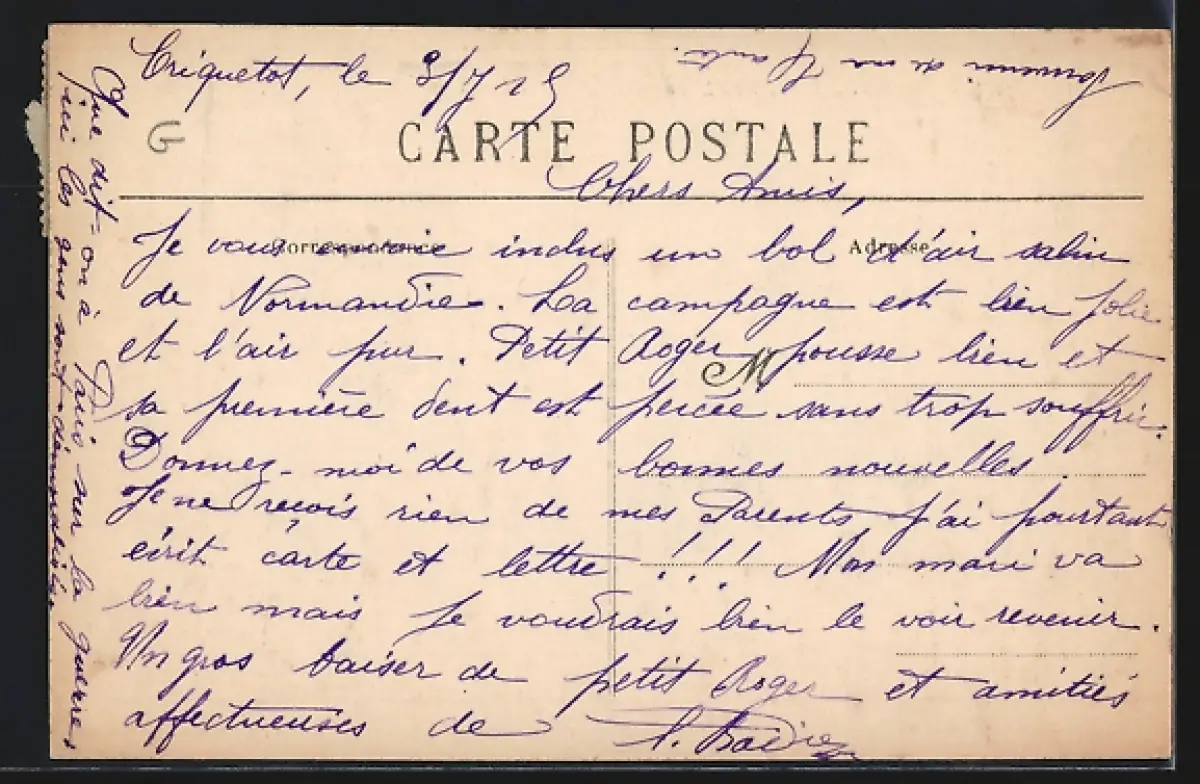 Criquetot, le 3/7 15
Souvenir de ma
G
CARTE POSTALE
Chers Amis,
Correspondance
Adresse
Je vous envoie inclus un bol d'air salin
de Normandie. La campagne est bien jolie
et l'air pur. Petit Roger pousse bien et
M
sa première dent est percée sans trop souffrir.
Donnez-moi de vos bonnes nouvelles.
Je ne reçois rien de mes Parents, j'ai pourtant
écrit carte et lettre !!! Mon mari va
bien mais je voudrais bien le voir revenir.
Un gros baiser de petit Roger et amitiés
affectueuses de
Que dit-on à Paris sur la guerre,
ici les gens sont démoralisés